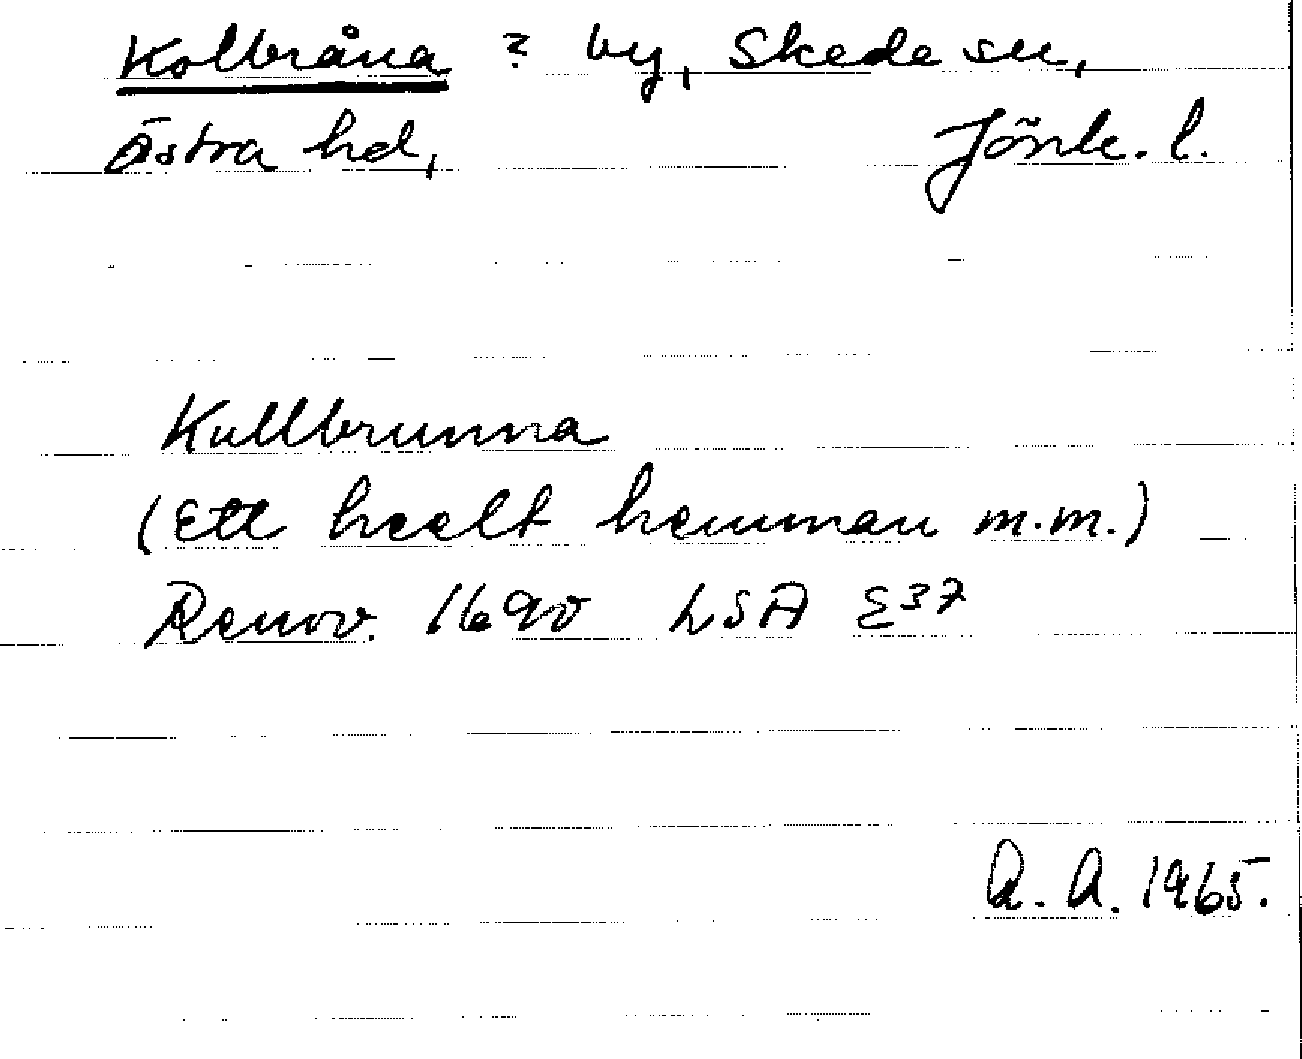 Kolbråna ? by, Skede sn,
Östra hd, Jönk. l.
Kullbrunna
(Ett heelt hemman m.m.)
Renov. 1690 LSA E37
A. A. 1965.